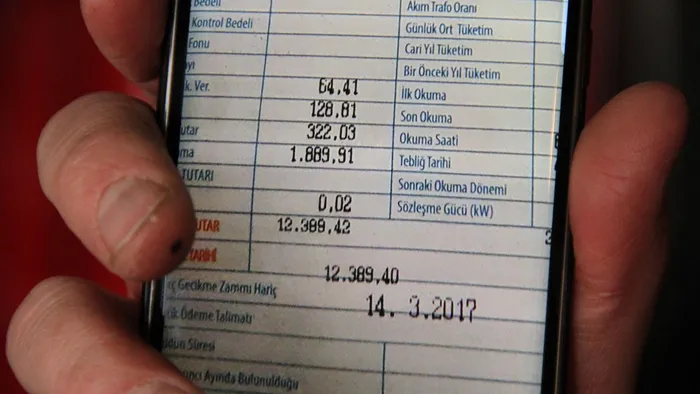 Bedeli
Akım Trafo Oranı
Kontrol Bedeli
Günlük Ort Tüketim
Fonu
Cari Yıl Tüketim
Bir Önceki Yıl Tüketim
k. Ver. 64,41 İlk Okuma
128,81 Son Okuma
utar 322,03 Okuma Saati
ma 1.889,91 Tebliğ Tarihi
TUTARI Sonraki Okuma Dönemi
0,02 Sözleşme Gücü (kW)
UTAR 12.389,42
TARİHİ
12.389,40
Gecikme Zammı Hariç
14. 3.2017
Ödeme Talimatı
Süresi
Ayında Bulunulduğu